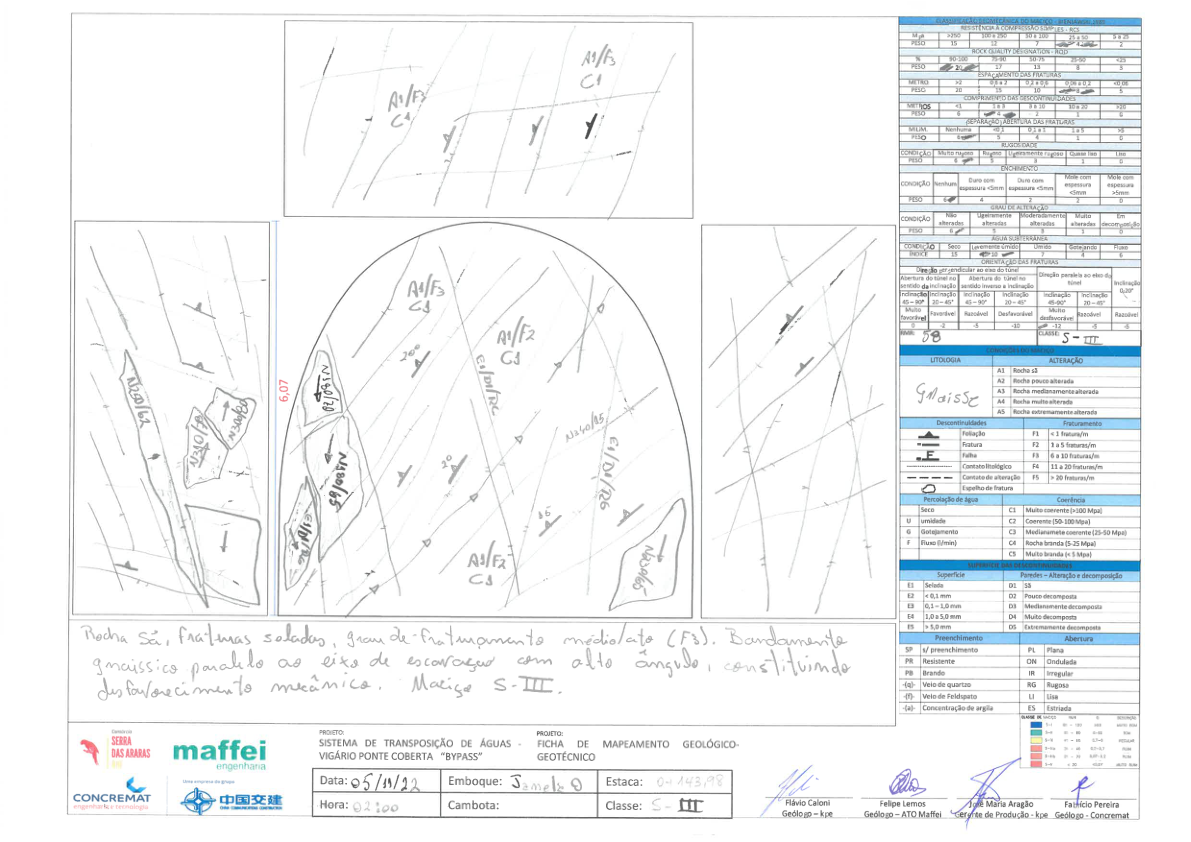 CLASSIFICAÇÃO GEOMECÂNICA DO MACIÇO - BIENIAWSKI, 1989
RESISTÊNCIA À COMPRESSÃO SIMPLES - RCS
Mpa >250 100 a 250 50 a 100 25 a 50 5 a 25
PESO 15 12 7 4 2
ROCK QUALITY DESIGNATION - RQD
% 90-100 75-90 50-75 25-50 <25
PESO 20 17 13 8 3
ESPAÇAMENTO DAS FRATURAS
METRO >2 0,6 a 2 0,2 a 0,6 0,06 a 0,2 <0,06
PESO 20 15 10 8 5
COMPRIMENTO DAS DESCONTINUIDADES
METROS <1 1 a 3 3 a 10 10 a 20 >20
PESO 6 4 2 1 0
SEPARAÇÃO/ABERTURA DAS FRATURAS
MILIM. Nenhuma <0,1 0,1 a 1 1 a 5 >5
PESO 6 5 4 1 0
RUGOSIDADE
CONDIÇÃO Muito rugoso Rugoso Ligeiramente rugoso Quase liso Liso
PESO 6 5 3 1 0
ENCHIMENTO
CONDIÇÃO Nenhum Duro com espessura <5mm Duro com espessura <5mm Mole com espessura <5mm Mole com espessura >5mm
PESO 6 4 2 2 0
GRAU DE ALTERAÇÃO
CONDIÇÃO Não alteradas Ligeiramente alteradas Moderadamente alteradas Muito alteradas Em decomposição
PESO 6 5 3 1 0
ÁGUA SUBTERRÂNEA
CONDIÇÃO Seco Levemente úmido Úmido Gotejando Fluxo
ÍNDICE 15 10 7 4
ORIENTAÇÃO DAS FRATURAS
Direção perpendicular ao eixo do túnel Direção paralela ao eixo do túnel Inclinação 0,20°
Abertura do túnel no sentido da inclinação Abertura do túnel no sentido inverso a inclinação
Inclinação 45 – 90° Inclinação 20 – 45° Inclinação 45 – 90° Inclinação 20 – 45° Inclinação 45-90° Inclinação 20 – 45°
Muito favorável Favorável Razoável Desfavorável Muito desfavorável Razoável Razoável
0 -2 -5 -10 -12 -5
RMR: 58 CLASSE: S-III
LITOLOGIA ALTERAÇÃO
Gnaisse
A1 Rocha sã
A2 Rocha pouco alterada
A3 Rocha medianamente alterada
A4 Rocha muito alterada
A5 Rocha extremamente alterada
Descontinuidades Fraturamento
Foliação F1 < 1 fratura/m
Fratura F2 3 a 5 fraturas/m
F Falha F3 6 a 10 fraturas/m
Contato litológico F4 11 a 20 fraturas/m
Contato de alteração F5 > 20 fraturas/m
Espelho de fratura
Percolação de água Coerência
Seco C1 Muito coerente (>100 Mpa)
U umidade C2 Coerente (50-100 Mpa)
G Gotejamento C3 Medianamete coerente (25-50 Mpa)
F Fluxo (l/min) C4 Rocha branda (5-25 Mpa)
C5 Muito branda (< 5 Mpa)
SUPERFÍCIE DAS DESCONTINUIDADES
Superfície Paredes – Alteração e decomposição
E1 Selada D1 Sã
E2 < 0,1 mm D2 Pouco decomposta
E3 0,1 – 1,0 mm D3 Medianamente decomposta
E4 1,0 a 5,0 mm D4 Muito decomposta
E5 > 5,0 mm D5 Extremamente decomposta
Preenchimento Abertura
SP s/ preenchimento PL Plana
PR Resistente ON Ondulada
PB Brando IR Irregular
-(q)- Veio de quartzo RG Rugosa
-(f)- Veio de Feldspato LI Lisa
-(a)- Concentração de argila ES Estriada
A1/F3
C1
A1/F3
C1
A1/F3
C1
A1/F2
C1
A1/F2
C1
20
6,07
N180/85
Rocha Sã, Fraturas seladas, grau de fraturamento médio/alto (F3). Bandamento
gnáissico paralelo ao eixo de escavação com alto ângulo, constituindo
desfavorecimento mecânico. Maciço S-III.
SERRA
DAS ARARAS
maffei
engenharia
CONCREMAT
engenharia e tecnologia
中国交建
PROJETO:
SISTEMA DE TRANSPOSIÇÃO DE ÁGUAS -
VIGÁRIO PONTE COBERTA "BYPASS"
PROJETO:
FICHA DE MAPEAMENTO GEOLÓGICO-
GEOTÉCNICO
Data: 05/11/22 Emboque: Janela Estaca: 0+143,98
Hora: 02:00 Cambota: Classe: S-III
Flávio Caloni
Geólogo – kpe
Felipe Lemos
Geólogo – ATO Maffei
José Maria Aragão
Gerente de Produção - kpe
Fabrício Pereira
Geólogo - Concremat